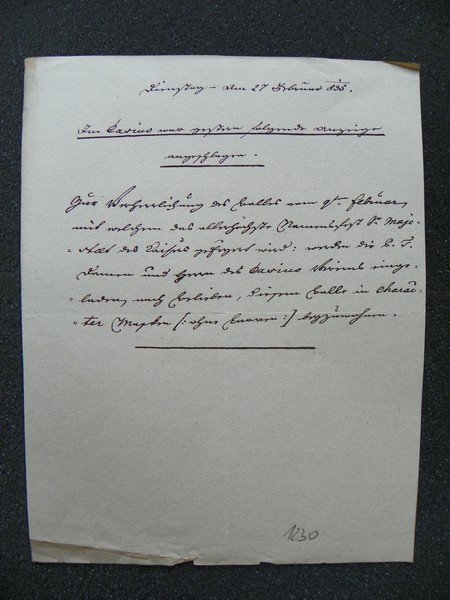 Dienstag – am 27 Februar 836.
Im Casino war gestern folgende Anzeige
angeschlagen.
Zur Verherrlichung des Balles vom 9ten Februar,
mit welchem das allerhöchste Namensfest Sr Maje-
-stät des Kaisers gefeyert wird: werden die P. T.
Damen und Herrn des Casino Vereins einge-
-laden, nach Belieben, diesem Balle in Charac-
-ter Masken [: ohne Larven :] beyzuwohnen.
1830